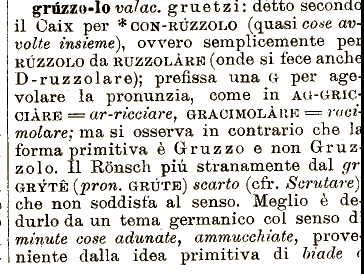 grúzzo-lo valac. gruetzi: detto secondo
il Caix per *CON-RÚZZOLO (quasi cose av-
volte insieme), ovvero semplicemente per
RÚZZOLO da RUZZOLÀRE (onde si fece anche
D-ruzzolare); prefissa una G per age-
volare la pronunzia, come in AG-GRIC-
CIÀRE = ar-ricciare, GRACIMOLÀRE = raci-
molare; ma si osserva in contrario che la
forma primitiva è Gruzzo e non Gruz-
zolo. Il Rönsch piú stranamente dal gr
GRÝTÊ (pron. GRÚTE) scarto (cfr. Scrutare)
che non soddisfa al senso. Meglio è de-
durlo da un tema germanico col senso d
minute cose adunate, ammucchiate, prove-
niente dalla idea primitiva di biade